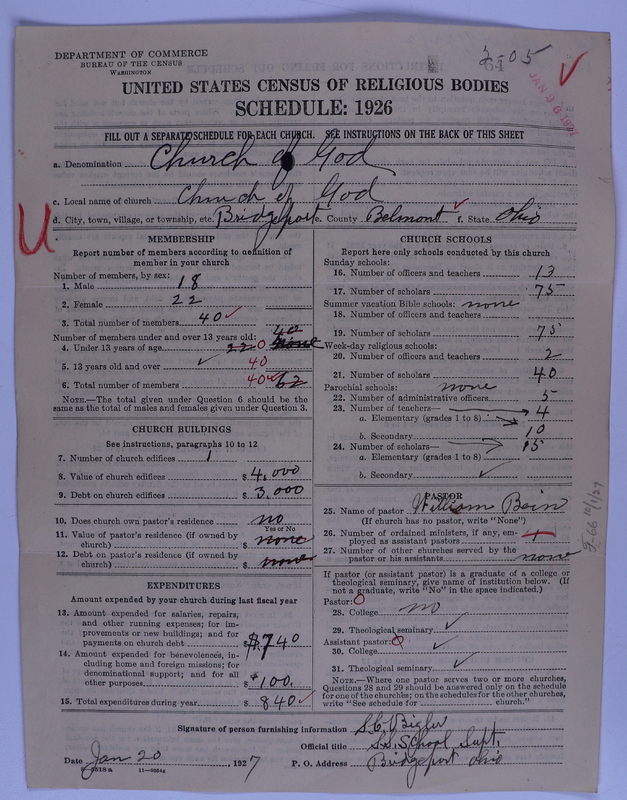 DEPARTMENT OF COMMERCE
BUREAU OF THE CENSUS
WASHINGTON
3-05
64
UNITED STATES CENSUS OF RELIGIOUS BODIES
SCHEDULE: 1926
FILL OUT A SEPARATE SCHEDULE FOR EACH CHURCH. SEE INSTRUCTIONS ON THE BACK OF THIS SHEET
a. Denomination Church of God
c. Local name of church Church of God
d. City, town, village, or township, etc. Bridgeport e. County Belmont f. State Ohio
U
MEMBERSHIP
Report number of members according to definition of
member in your church
Number of members, by sex:
1. Male 18
2. Female 22
3. Total number of members 40
Number of members under and over 13 years old: 40
4. Under 13 years of age 22 0 none
5. 13 years old and over 40
6. Total number of members 40 62
NOTE.—The total given under Question 6 should be the
same as the total of males and females given under Question 3.
CHURCH BUILDINGS
See instructions, paragraphs 10 to 12
7. Number of church edifices 1
8. Value of church edifices $ 4,000
9. Debt on church edifices $ 3,000
10. Does church own pastor's residence no
Yes or No
11. Value of pastor's residence (if owned by
church) $ none
12. Debt on pastor's residence (if owned by
church) $ none
EXPENDITURES
Amount expended by your church during last fiscal year
13. Amount expended for salaries, repairs,
and other running expenses; for im-
provements or new buildings; and for
payments on church debt $ 740
14. Amount expended for benevolences, in-
cluding home and foreign missions; for
denominational support; and for all
other purposes $ 100.
15. Total expenditures during year $ 840
CHURCH SCHOOLS
Report here only schools conducted by this church
Sunday schools:
16. Number of officers and teachers 13
17. Number of scholars 75
Summer vacation Bible schools: none
18. Number of officers and teachers
19. Number of scholars 75
Week-day religious schools:
20. Number of officers and teachers 2
21. Number of scholars 40
Parochial schools: none
22. Number of administrative officers 5
23. Number of teachers— 4
a. Elementary (grades 1 to 8)
b. Secondary 10
24. Number of scholars— 15
a. Elementary (grades 1 to 8)
b. Secondary
PASTOR
25. Name of pastor William Bein
(If church has no pastor, write "None")
26. Number of ordained ministers, if any, em-
ployed as assistant pastors
27. Number of other churches served by the
pastor or his assistants none
If pastor (or assistant pastor) is a graduate of a college or
theological seminary, give name of institution below. (If
not a graduate, write "No" in the space indicated.)
Pastor: 0
28. College no
29. Theological seminary
Assistant pastor: 0
30. College
31. Theological seminary
NOTE.—Where one pastor serves two or more churches,
Questions 28 and 29 should be answered only on the schedule
for one of the churches; on the schedules for the other churches,
write "See schedule for church."
Signature of person furnishing information S.C. Bigler
Official title S.S. School Supt.
Date Jan 20, 1927 P. O. Address Bridgeport Ohio